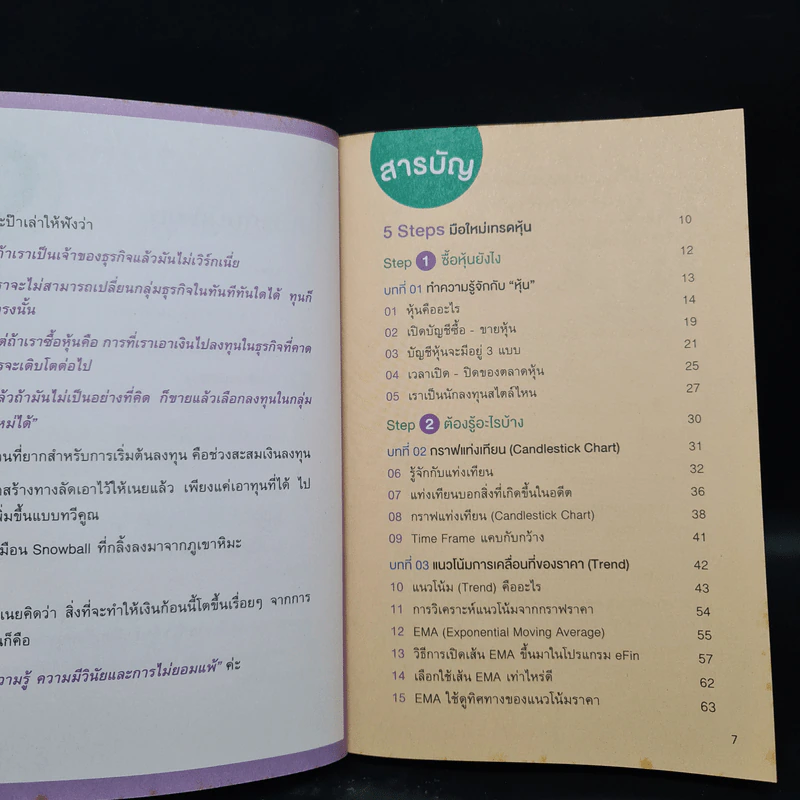 ะป๊าเล่าให้ฟังว่า
ถ้าเราเป็นเจ้าของธุรกิจแล้วมันไม่เวิร์กเนี่ย
ราจะไม่สามารถเปลี่ยนกลุ่มธุรกิจในทันทีทันใดได้ ทุนก็
รงนั้น
ต่ถ้าเราซื้อหุ้นคือ การที่เราเอาเงินไปลงทุนในธุรกิจที่คาด
รจะเติบโตต่อไป
ล้วถ้ามันไม่เป็นอย่างที่คิด ก็ขายแล้วเลือกลงทุนในกลุ่ม
หม่ได้"
านที่ยากสำหรับการเริ่มต้นลงทุน คือช่วงสะสมเงินลงทุน
าสร้างทางลัดเอาไว้ให้เนยแล้ว เพียงแค่เอาทุนที่ได้ ไป
พิ่มขึ้นแบบทวีคูณ
มือน Snowball ที่กลิ้งลงมาจากภูเขาหิมะ
เนยคิดว่า สิ่งที่จะทำให้เงินก้อนนี้โตขึ้นเรื่อยๆ จากการ
นก็คือ
วามรู้ ความมีวินัยและการไม่ยอมแพ้" ค่ะ
สารบัญ
5 Steps มือใหม่เทรดหุ้น 10
Step 1 ซื้อหุ้นยังไง 12
บทที่ 01 ทำความรู้จักกับ "หุ้น" 13
01 หุ้นคืออะไร 14
02 เปิดบัญชีซื้อ - ขายหุ้น 19
03 บัญชีหุ้นจะมีอยู่ 3 แบบ 21
04 เวลาเปิด - ปิดของตลาดหุ้น 25
05 เราเป็นนักลงทุนสไตล์ไหน 27
Step 2 ต้องรู้อะไรบ้าง 30
บทที่ 02 กราฟแท่งเทียน (Candlestick Chart) 31
06 รู้จักกับแท่งเทียน 32
07 แท่งเทียนบอกสิ่งที่เกิดขึ้นในอดีต 36
08 กราฟแท่งเทียน (Candlestick Chart) 38
09 Time Frame แคบกับกว้าง 41
บทที่ 03 แนวโน้มการเคลื่อนที่ของราคา (Trend) 42
10 แนวโน้ม (Trend) คืออะไร 43
11 การวิเคราะห์แนวโน้มจากกราฟราคา 54
12 EMA (Exponential Moving Average) 55
13 วิธีการเปิดเส้น EMA ขึ้นมาในโปรแกรม eFin 57
14 เลือกใช้เส้น EMA เท่าไหร่ดี 62
15 EMA ใช้ดูทิศทางของแนวโน้มราคา 63
7